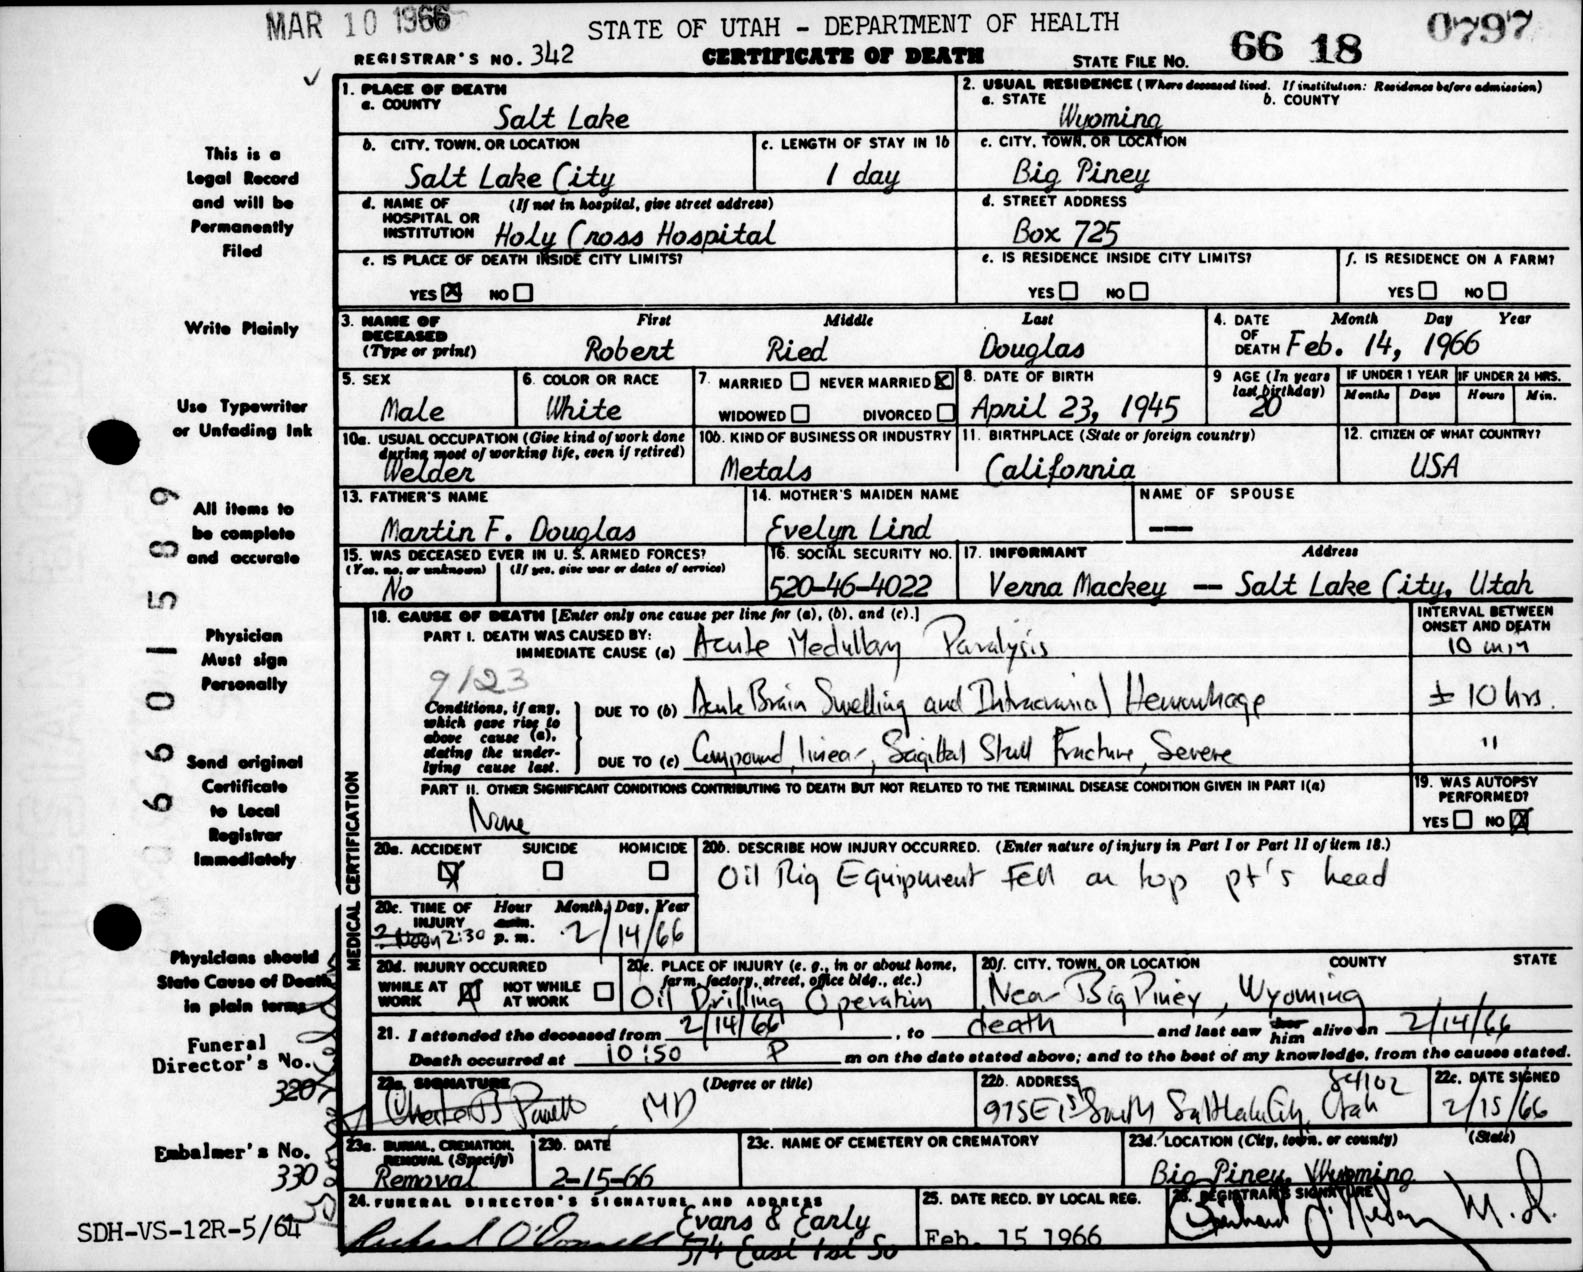 MAR 10 1966
STATE OF UTAH - DEPARTMENT OF HEALTH
0797
REGISTRAR'S NO. 342
CERTIFICATE OF DEATH
STATE FILE NO. 66 18
1. PLACE OF DEATH
a. COUNTY
Salt Lake
2. USUAL RESIDENCE (Where deceased lived. If institution: Residence before admission)
a. STATE b. COUNTY
Wyoming
b. CITY, TOWN, OR LOCATION
Salt Lake City
c. LENGTH OF STAY IN 1b
1 day
c. CITY, TOWN, OR LOCATION
Big Piney
d. NAME OF HOSPITAL OR INSTITUTION (If not in hospital, give street address)
Holy Cross Hospital
d. STREET ADDRESS
Box 725
e. IS PLACE OF DEATH INSIDE CITY LIMITS?
YES ☒ NO ☐
e. IS RESIDENCE INSIDE CITY LIMITS?
YES ☐ NO ☐
f. IS RESIDENCE ON A FARM?
YES ☐ NO ☐
3. NAME OF DECEASED (Type or print)
First Middle Last
Robert Ried Douglas
4. DATE OF DEATH Month Day Year
Feb. 14, 1966
5. SEX
Male
6. COLOR OR RACE
White
7. MARRIED ☐ NEVER MARRIED ☒
WIDOWED ☐ DIVORCED ☐
8. DATE OF BIRTH
April 23, 1945
9 AGE (In years last birthday)
20
IF UNDER 1 YEAR
Months Days
IF UNDER 24 HRS.
Hours Min.
10a. USUAL OCCUPATION (Give kind of work done during most of working life, even if retired)
Welder
10b. KIND OF BUSINESS OR INDUSTRY
Metals
11. BIRTHPLACE (State or foreign country)
California
12. CITIZEN OF WHAT COUNTRY?
USA
13. FATHER'S NAME
Martin F. Douglas
14. MOTHER'S MAIDEN NAME
Evelyn Lind
NAME OF SPOUSE
—
15. WAS DECEASED EVER IN U. S. ARMED FORCES?
(Yes, no, or unknown) (If yes, give war or dates of service)
No
16. SOCIAL SECURITY NO.
520-46-4022
17. INFORMANT Address
Verna Mackey — Salt Lake City, Utah
18. CAUSE OF DEATH [Enter only one cause per line for (a), (b), and (c).]
INTERVAL BETWEEN ONSET AND DEATH
PART I. DEATH WAS CAUSED BY:
IMMEDIATE CAUSE (a) Acute Medullary Paralysis
10 min
9/23
Conditions, if any, which gave rise to above cause (a), stating the underlying cause last.
DUE TO (b) Acute Brain Swelling and Intracranial Hemorrhage
± 10 hrs.
DUE TO (c) Compound, linear, Sagittal Skull Fracture, Severe
"
PART II. OTHER SIGNIFICANT CONDITIONS CONTRIBUTING TO DEATH BUT NOT RELATED TO THE TERMINAL DISEASE CONDITION GIVEN IN PART I(a)
None
19. WAS AUTOPSY PERFORMED?
YES ☐ NO ☒
MEDICAL CERTIFICATION
20a. ACCIDENT SUICIDE HOMICIDE
☒ ☐ ☐
20b. DESCRIBE HOW INJURY OCCURRED. (Enter nature of injury in Part I or Part II of item 18.)
Oil Rig Equipment Fell on top pt's head
20c. TIME OF INJURY Hour Month, Day, Year
2:30 p. m. 2/14/66
20d. INJURY OCCURRED
WHILE AT WORK ☒ NOT WHILE AT WORK ☐
20e. PLACE OF INJURY (e. g., in or about home, farm, factory, street, office bldg., etc.)
Oil Drilling Operation
20f. CITY, TOWN, OR LOCATION COUNTY STATE
Near Big Piney, Wyoming
21. I attended the deceased from 2/14/66, to death and last saw her him alive on 2/14/66
Death occurred at 10:50 P m on the date stated above; and to the best of my knowledge, from the causes stated.
22a. SIGNATURE (Degree or title)
Chester B Powell MD
22b. ADDRESS
975 E 1st South Salt Lake City, Utah 84102
22c. DATE SIGNED
2/15/66
23a. BURIAL, CREMATION, REMOVAL (Specify)
Removal
23b. DATE
2-15-66
23c. NAME OF CEMETERY OR CREMATORY
23d. LOCATION (City, town, or county) (State)
Big Piney, Wyoming
24. FUNERAL DIRECTOR'S SIGNATURE AND ADDRESS
Evans & Early
574 East 1st So
25. DATE RECD. BY LOCAL REG.
Feb. 15 1966
26. REGISTRAR'S SIGNATURE
M. D.
This is a
Legal Record
and will be
Permanently
Filed
Write Plainly
Use Typewriter
or Unfading Ink
All items to
be complete
and accurate
Physician
Must sign
Personally
Send original
Certificate
to Local
Registrar
Immediately
Physicians should
State Cause of Death
in plain terms
Funeral
Director's No.
320
Embalmer's No.
330
SDH-VS-12R-5/64
660 1589